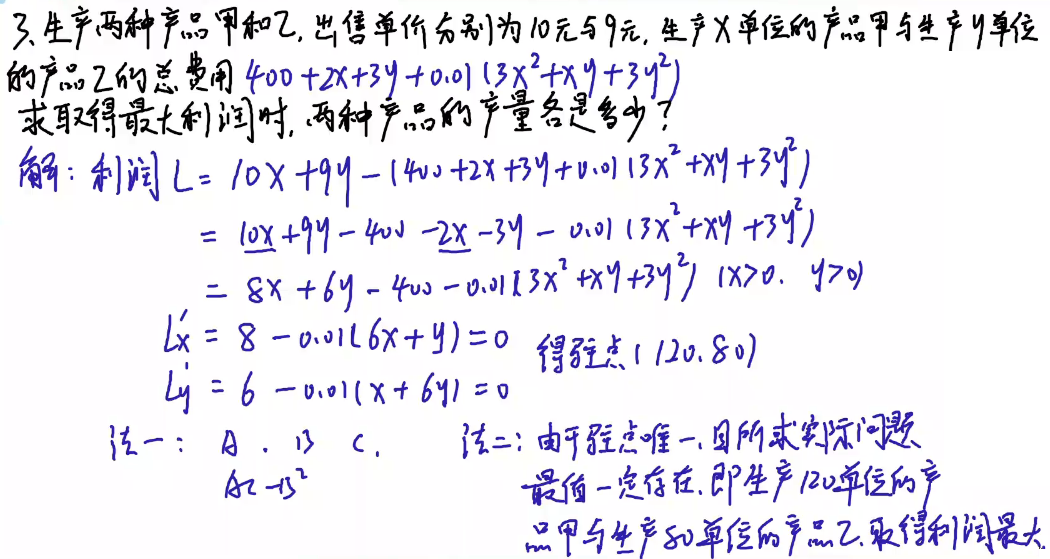 3、生产两种产品甲和乙,出售单价分别为10元与9元,生产X单位的产品甲与生产y单位
的产品乙的总费用400+2x+3y+0.01(3x²+xy+3y²)
求取得最大利润时,两种产品的产量各是多少?
解:利润L=10X+9y-(400+2x+3y+0.01(3x²+xy+3y²)
=10x+9y-400-2x-3y-0.01(3x²+xy+3y²)
=8x+6y-400-0.01(3x²+xy+3y²) (x>0. y>0)
Lx′=8-0.01(6x+y)=0
得驻点(120.80)
Ly′=6-0.01(x+6y)=0
法一: A . B C.
AC-B²
法二:由于驻点唯一,且所求实际问题
最值一定存在.即生产120单位的产
品甲与生产80单位的产品乙.取得利润最大.